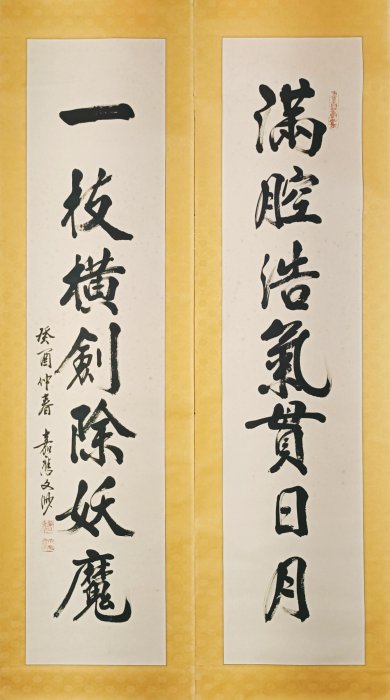 滿腔浩氣貫日月
一枝橫劍除妖魔
癸酉仲春 嘉應文渺